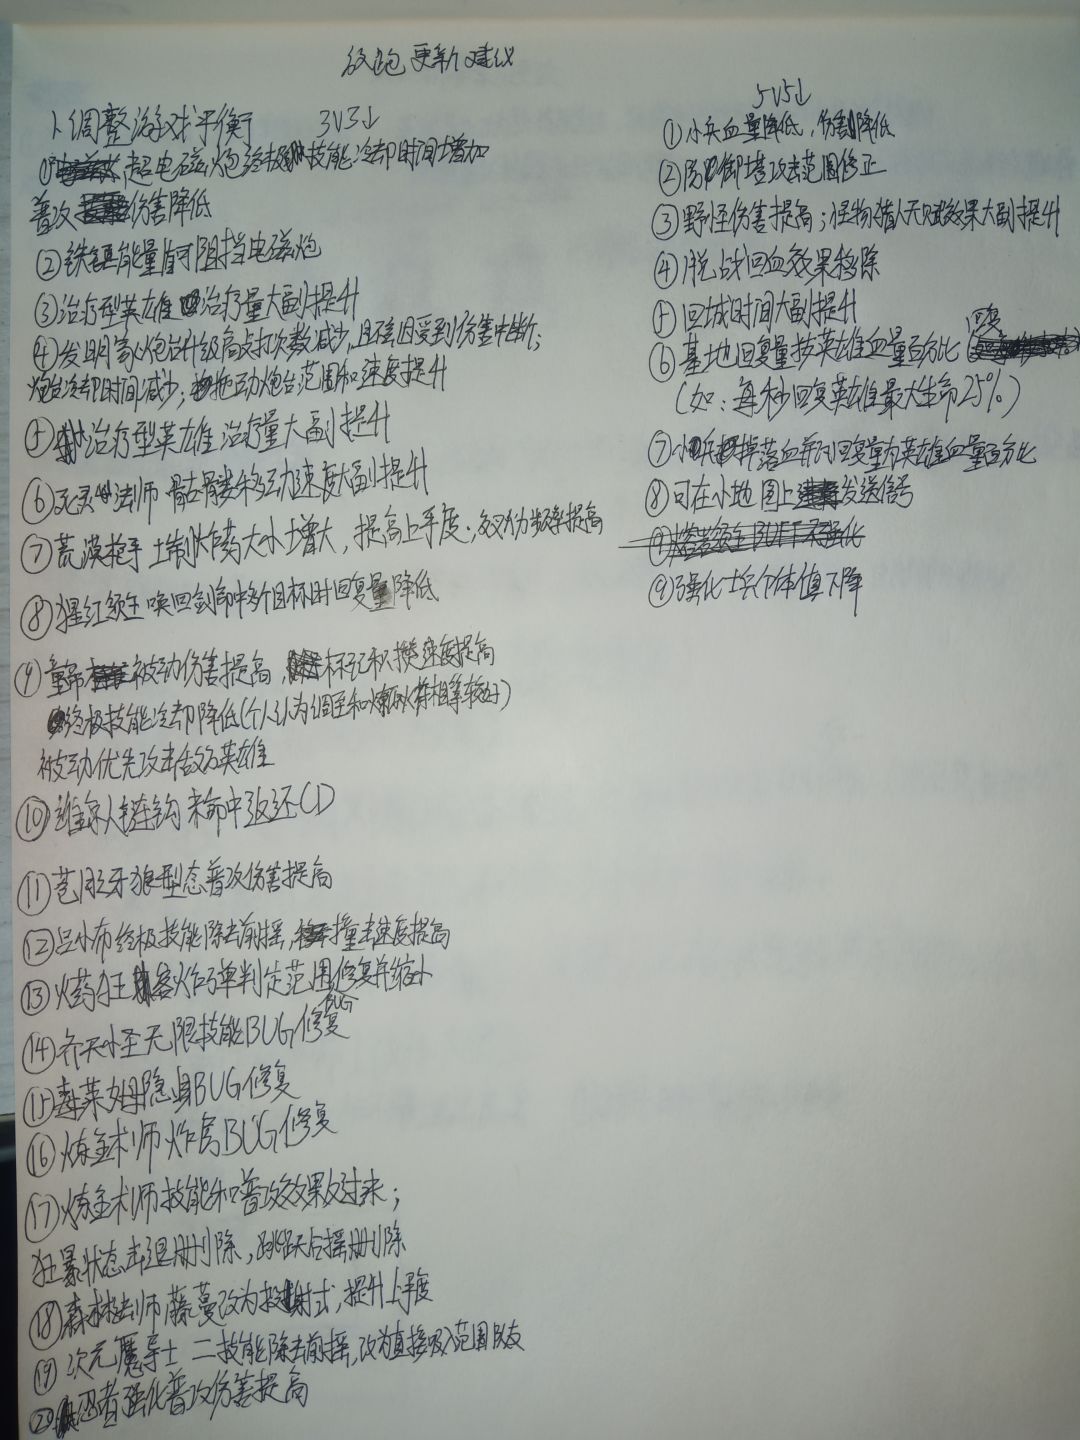 更新建议
1、调整游戏平衡 3V3↓
① 超电磁炮终极技能冷却时间增加
普攻伤害降低
②铁骑能量盾可阻挡电磁炮
③治疗型英雄治疗量大副提升
④发明家火炮台升级高点打次数减少,且不因受到伤害中断;
炮台冷却时间减少;拖动炮台范围和速度提升
⑤治疗型英雄治疗量大副提升
⑥死灵法师骷髅移动速度大副提升
⑦荒漠枪手土制炸药大小增大,提高上手度;频率提高
⑧猩红领主唤回剑命中多个目标时回复量降低
⑨童帝被动伤害提高,标记积攒速度提高
终极技能冷却降低(个人认为调至和相等较好)
被动优先攻击敌方英雄
⑩维京人链钩未命中返还CD
⑪苍月之牙狼型态普攻伤害提高
⑫吕小布终极技能除去前摇,撞击速度提高
⑬火药狂客炸弹判定范围BUG修复并缩小
⑭齐天小圣无限技能BUG修复
⑮毒莱姆隐身BUG修复
⑯炼金术师炸房BUG修复
⑰炼金术师技能和普攻效果反过来;
狂暴状态击退删除,跳跃后摇删除
⑱森林法师藤蔓改为投射式,提升上手度
⑲次元魔导士二技能除去前摇,改为直接吸入范围队友
⑳忍者强化普攻伤害提高
5V5↓
①小兵血量降低,伤害降低
②防御塔攻击范围修正
③野怪伤害提高;怪物猎人天赋效果大副提升
④脱战回血效果移除
⑤回城时间大副提升
⑥基地回复量按英雄血量百分比回复
(如:每秒回复英雄最大生命25%)
⑦小兵掉落血瓶的回复量为英雄血量百分比
⑧可在小地图上发送信号
⑨强化士兵个体值下降